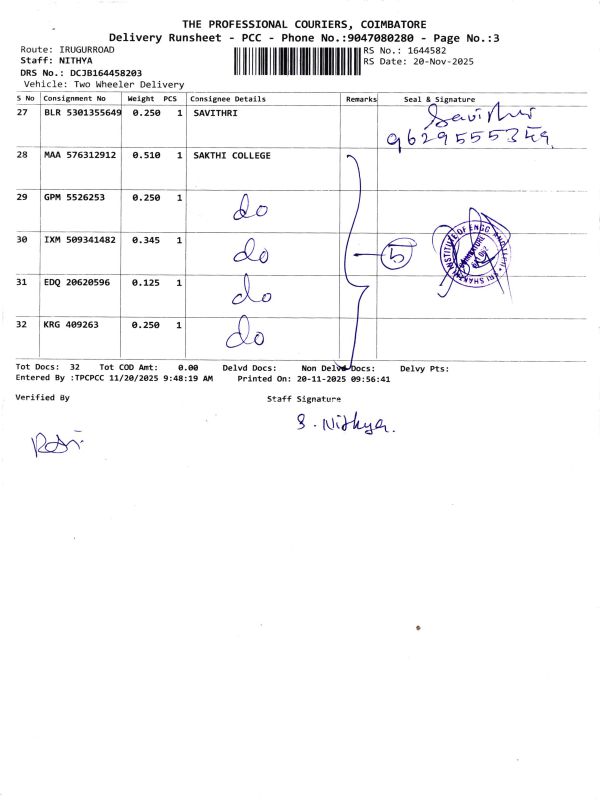 THE PROFESSIONAL COURIERS, COIMBATORE
Delivery Runsheet - PCC - Phone No.:9047080280 - Page No.:3
Route: IRUGURROAD
RS No.: 1644582
Staff: NITHYA
RS Date: 20-Nov-2025
DRS No.: DCJB164458203
Vehicle: Two Wheeler Delivery
S No Consignment No Weight PCS Consignee Details Remarks Seal & Signature
27 BLR 5301355649 0.250 1 SAVITHRI Savithri
9629555349
28 MAA 576312912 0.510 1 SAKTHI COLLEGE
29 GPM 5526253 0.250 1 do
30 IXM 509341482 0.345 1 do 5
31 EDQ 20620596 0.125 1 do
32 KRG 409263 0.250 1 do
Tot Docs: 32 Tot COD Amt: 0.00 Delvd Docs: Non Delvd Docs: Delvy Pts:
Entered By :TPCPCC 11/20/2025 9:48:19 AM Printed On: 20-11-2025 09:56:41
Verified By Staff Signature
S. Nithya.